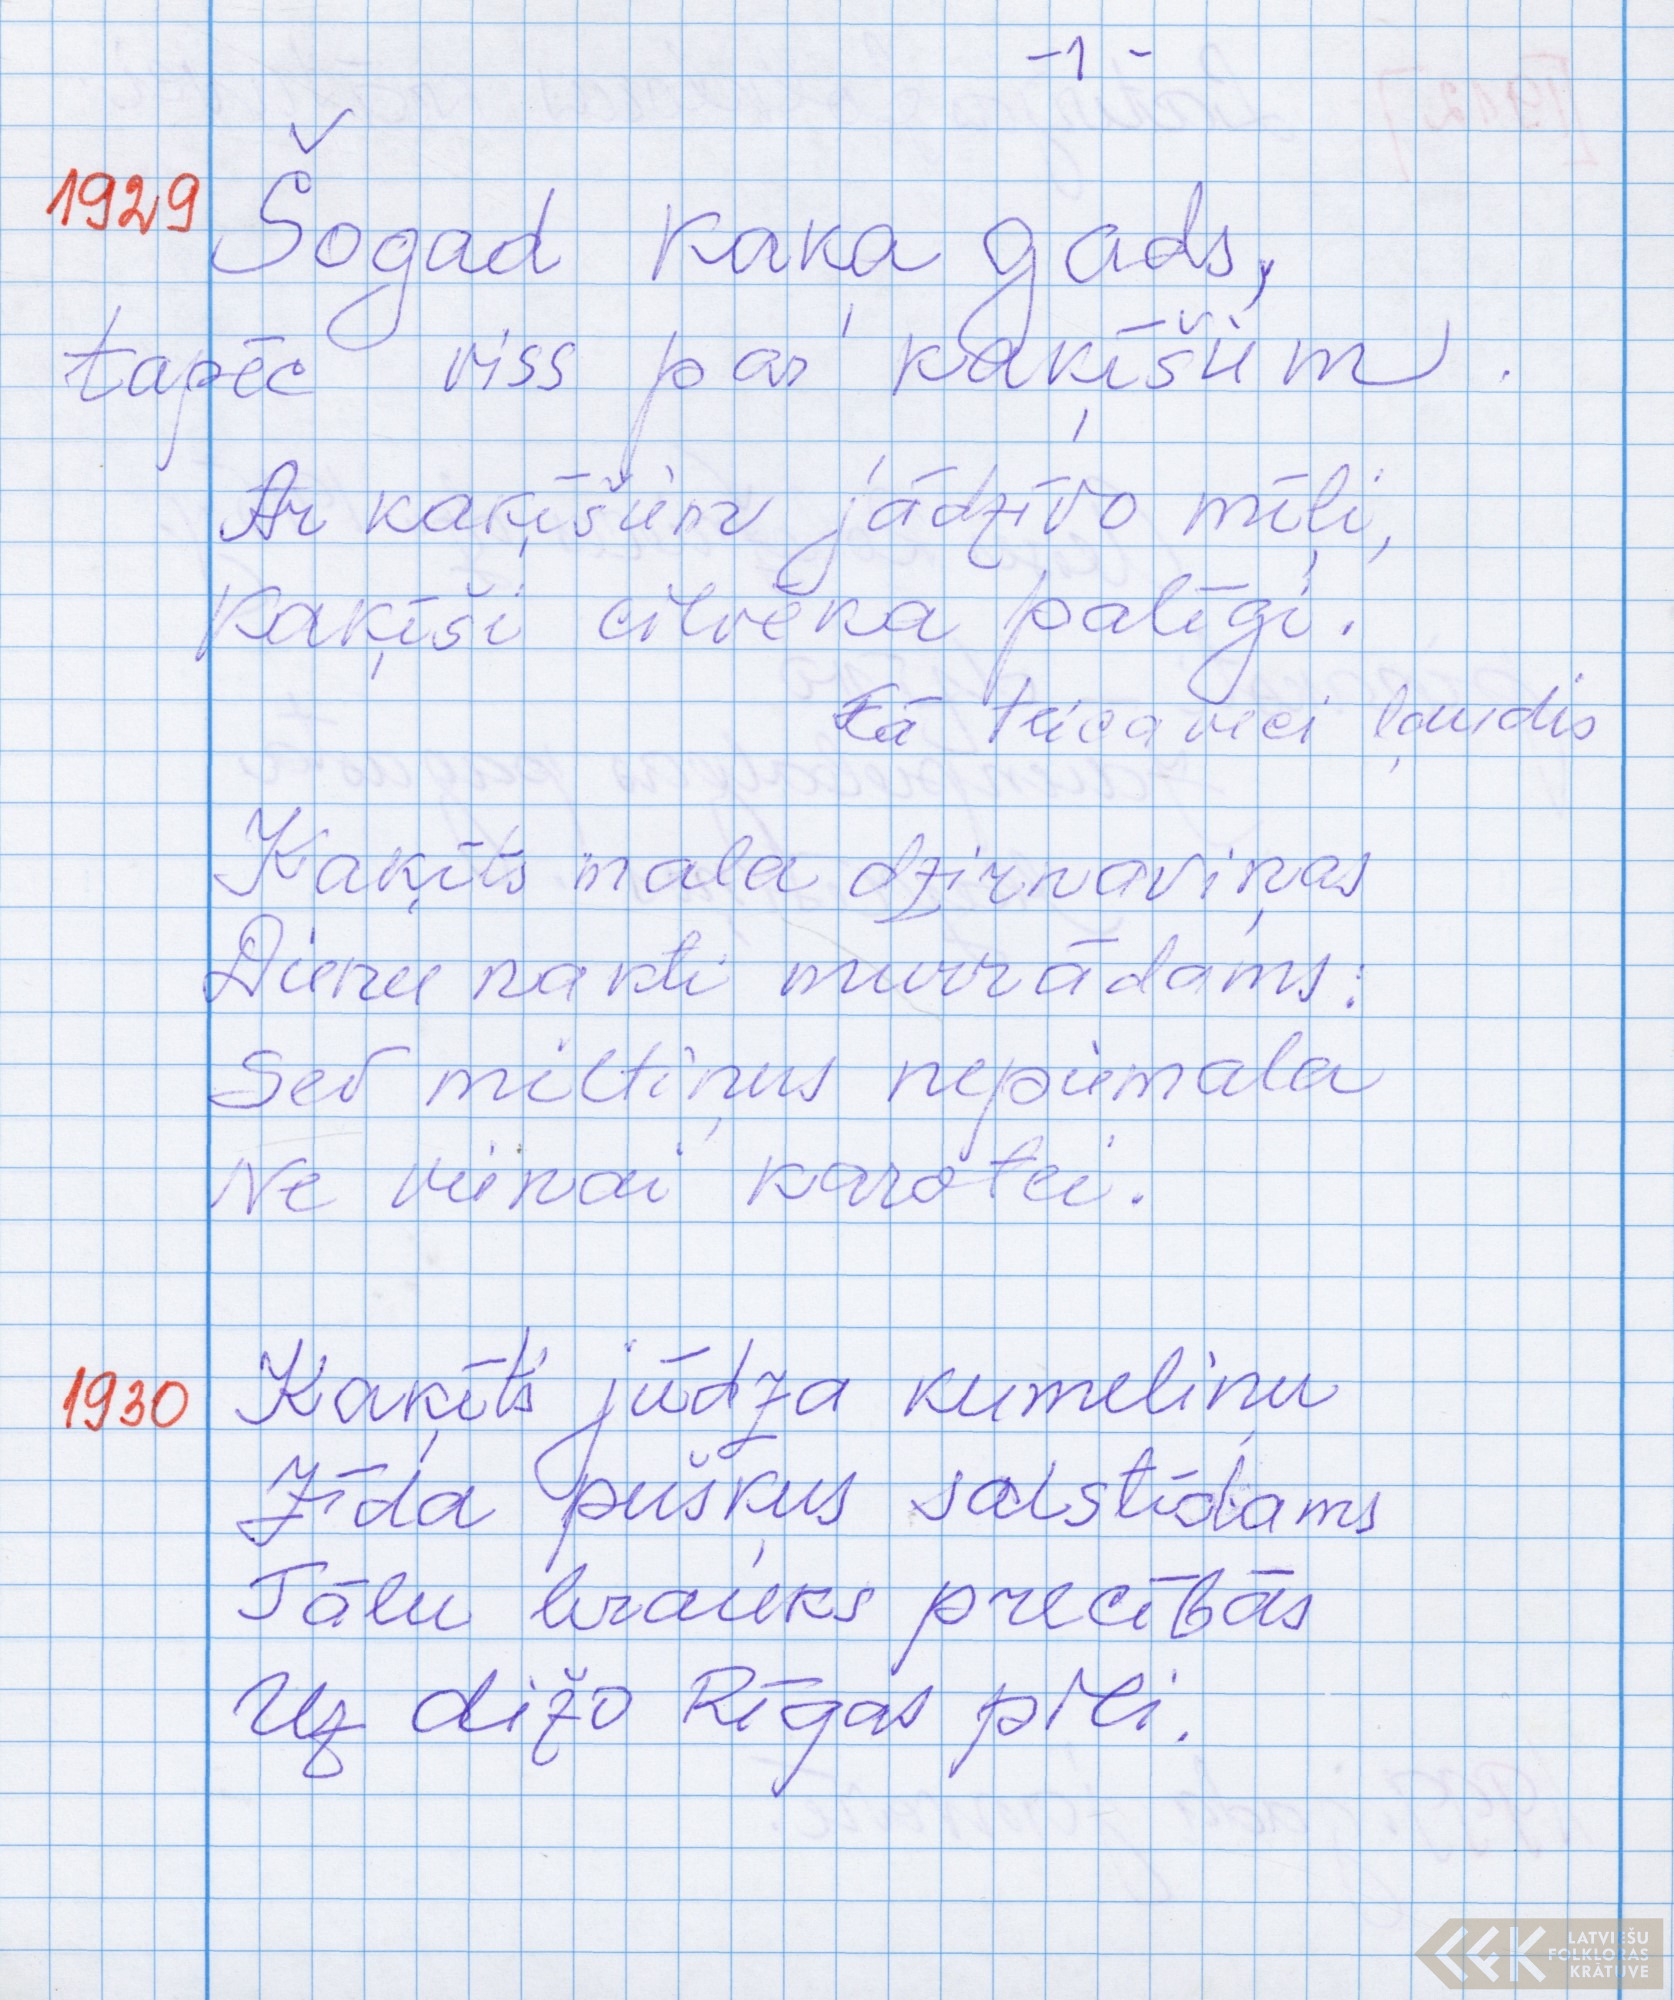 -1-
1929 Šogad kaķa gads,
tapēc viss par kaķīšiem.
Ar kaķīšiem jādzīvo mīļi,
Kaķīši cilvēka palīgi.
Tā teica veci ļaudis
Kaķīts mala dzirnaviņas
Dienu nakti murrādams:
Sev miltiņus nepiemala
Ne vienai karotei.
1930 Kaķīts jūdza kumeliņu
Zīda pušķus saistīdams
Tālu brauks precībās
Uz dižo Rīgas pili.
LATVIEŠU
FOLKLORAS
KRĀTUVE